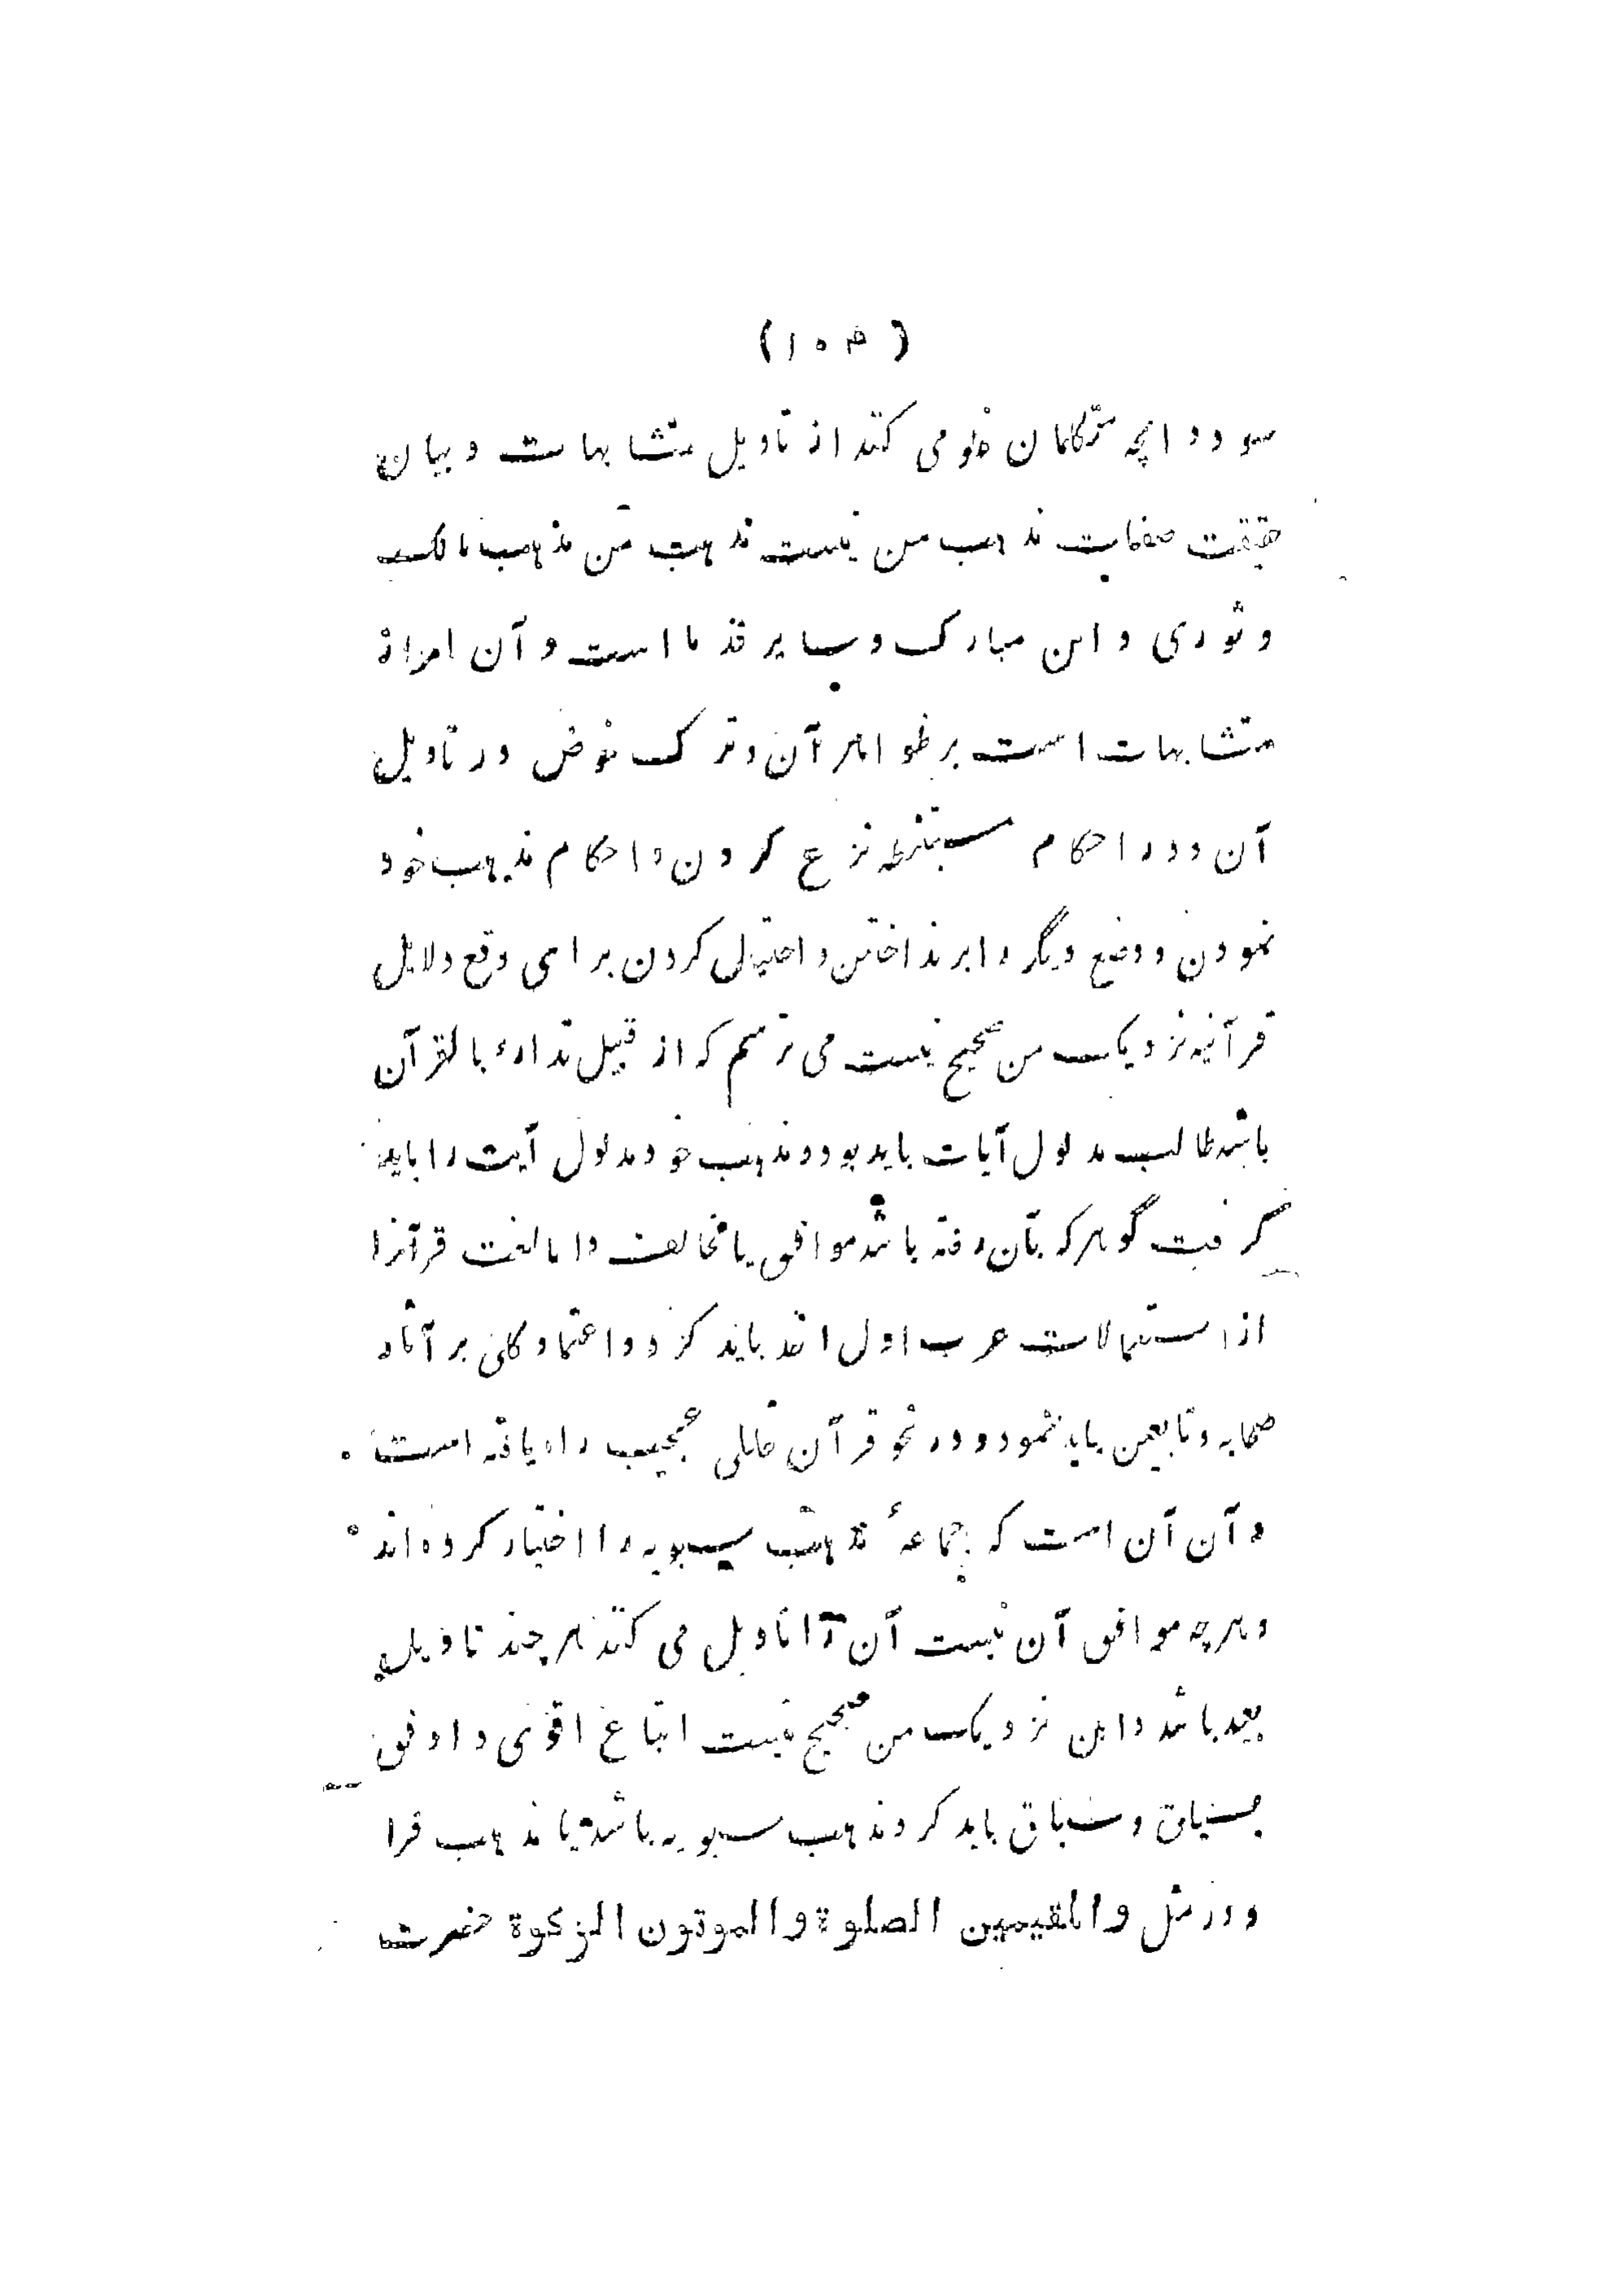 (۱۰۴)
سود و انچه متکلمان غلو می کنند از تاویل متشابهات و بیان
حقیقت صفات مذهب من نیست مذهب من مذهب مالک
و ثوری و ابن مبارک و سایر قدما است و آن امرار
متشابهات است بر ظواهر آن و ترک خوض در تاویل
آن و در احکام مستنبطه نزع کردن و احکام مذهب خود
نمودن و وضع دیگر را بر انداختن و احتیال کردن برای دفع دلایل
قرآنیه نزدیک من صحیح نیست می ترسم که از قبیل تدارء بالقرآن
باشد طالب مدلول آیات باید بود و مذهب خود مدلول آیت را باید
گرفت گو هر که بآن رفته باشد موافق یا مخالف و اما لغت قرآنرا
از استعمالات عرب اول اخذ باید کرد و اعتماد کلی بر آثار
صحابه و تابعین باید نمود و در نحو قرآن خللی عجیب راه یافته است
و آن آن است که جماعهٔ مذهب سیبویه را اختیار کرده اند
و هرچه موافق آن نیست آن را تاویل می کنند هر چند تاویل
بعید باشد و این نزدیک من صحیح نیست اتباع اقوی و اوفق
بسیاق و سباق باید کرد مذهب سیبویه باشد یا مذهب فرا
و در مثل والمقیمین الصلوة والموتون الزکوة حضرت